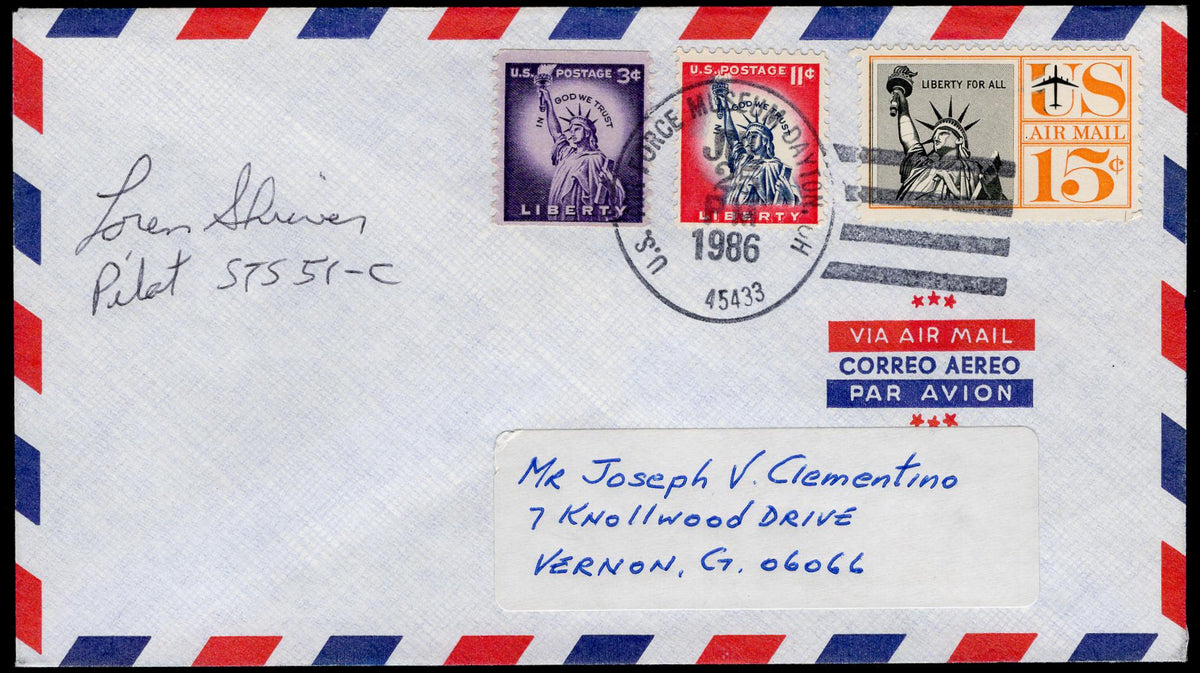 U.S. POSTAGE 3¢
IN GOD WE TRUST
LIBERTY
U.S. POSTAGE 11¢
IN GOD WE TRUST
LIBERTY
LIBERTY FOR ALL
US
AIR MAIL
15¢
U.S. FORCE MUSEUM DAYTON, OH
1986
45433
Loren Shriver
Pilot STS 51-C
VIA AIR MAIL
CORREO AEREO
PAR AVION
Mr Joseph V. Clementino
7 Knollwood DRIVE
VERNON, CT. 06066